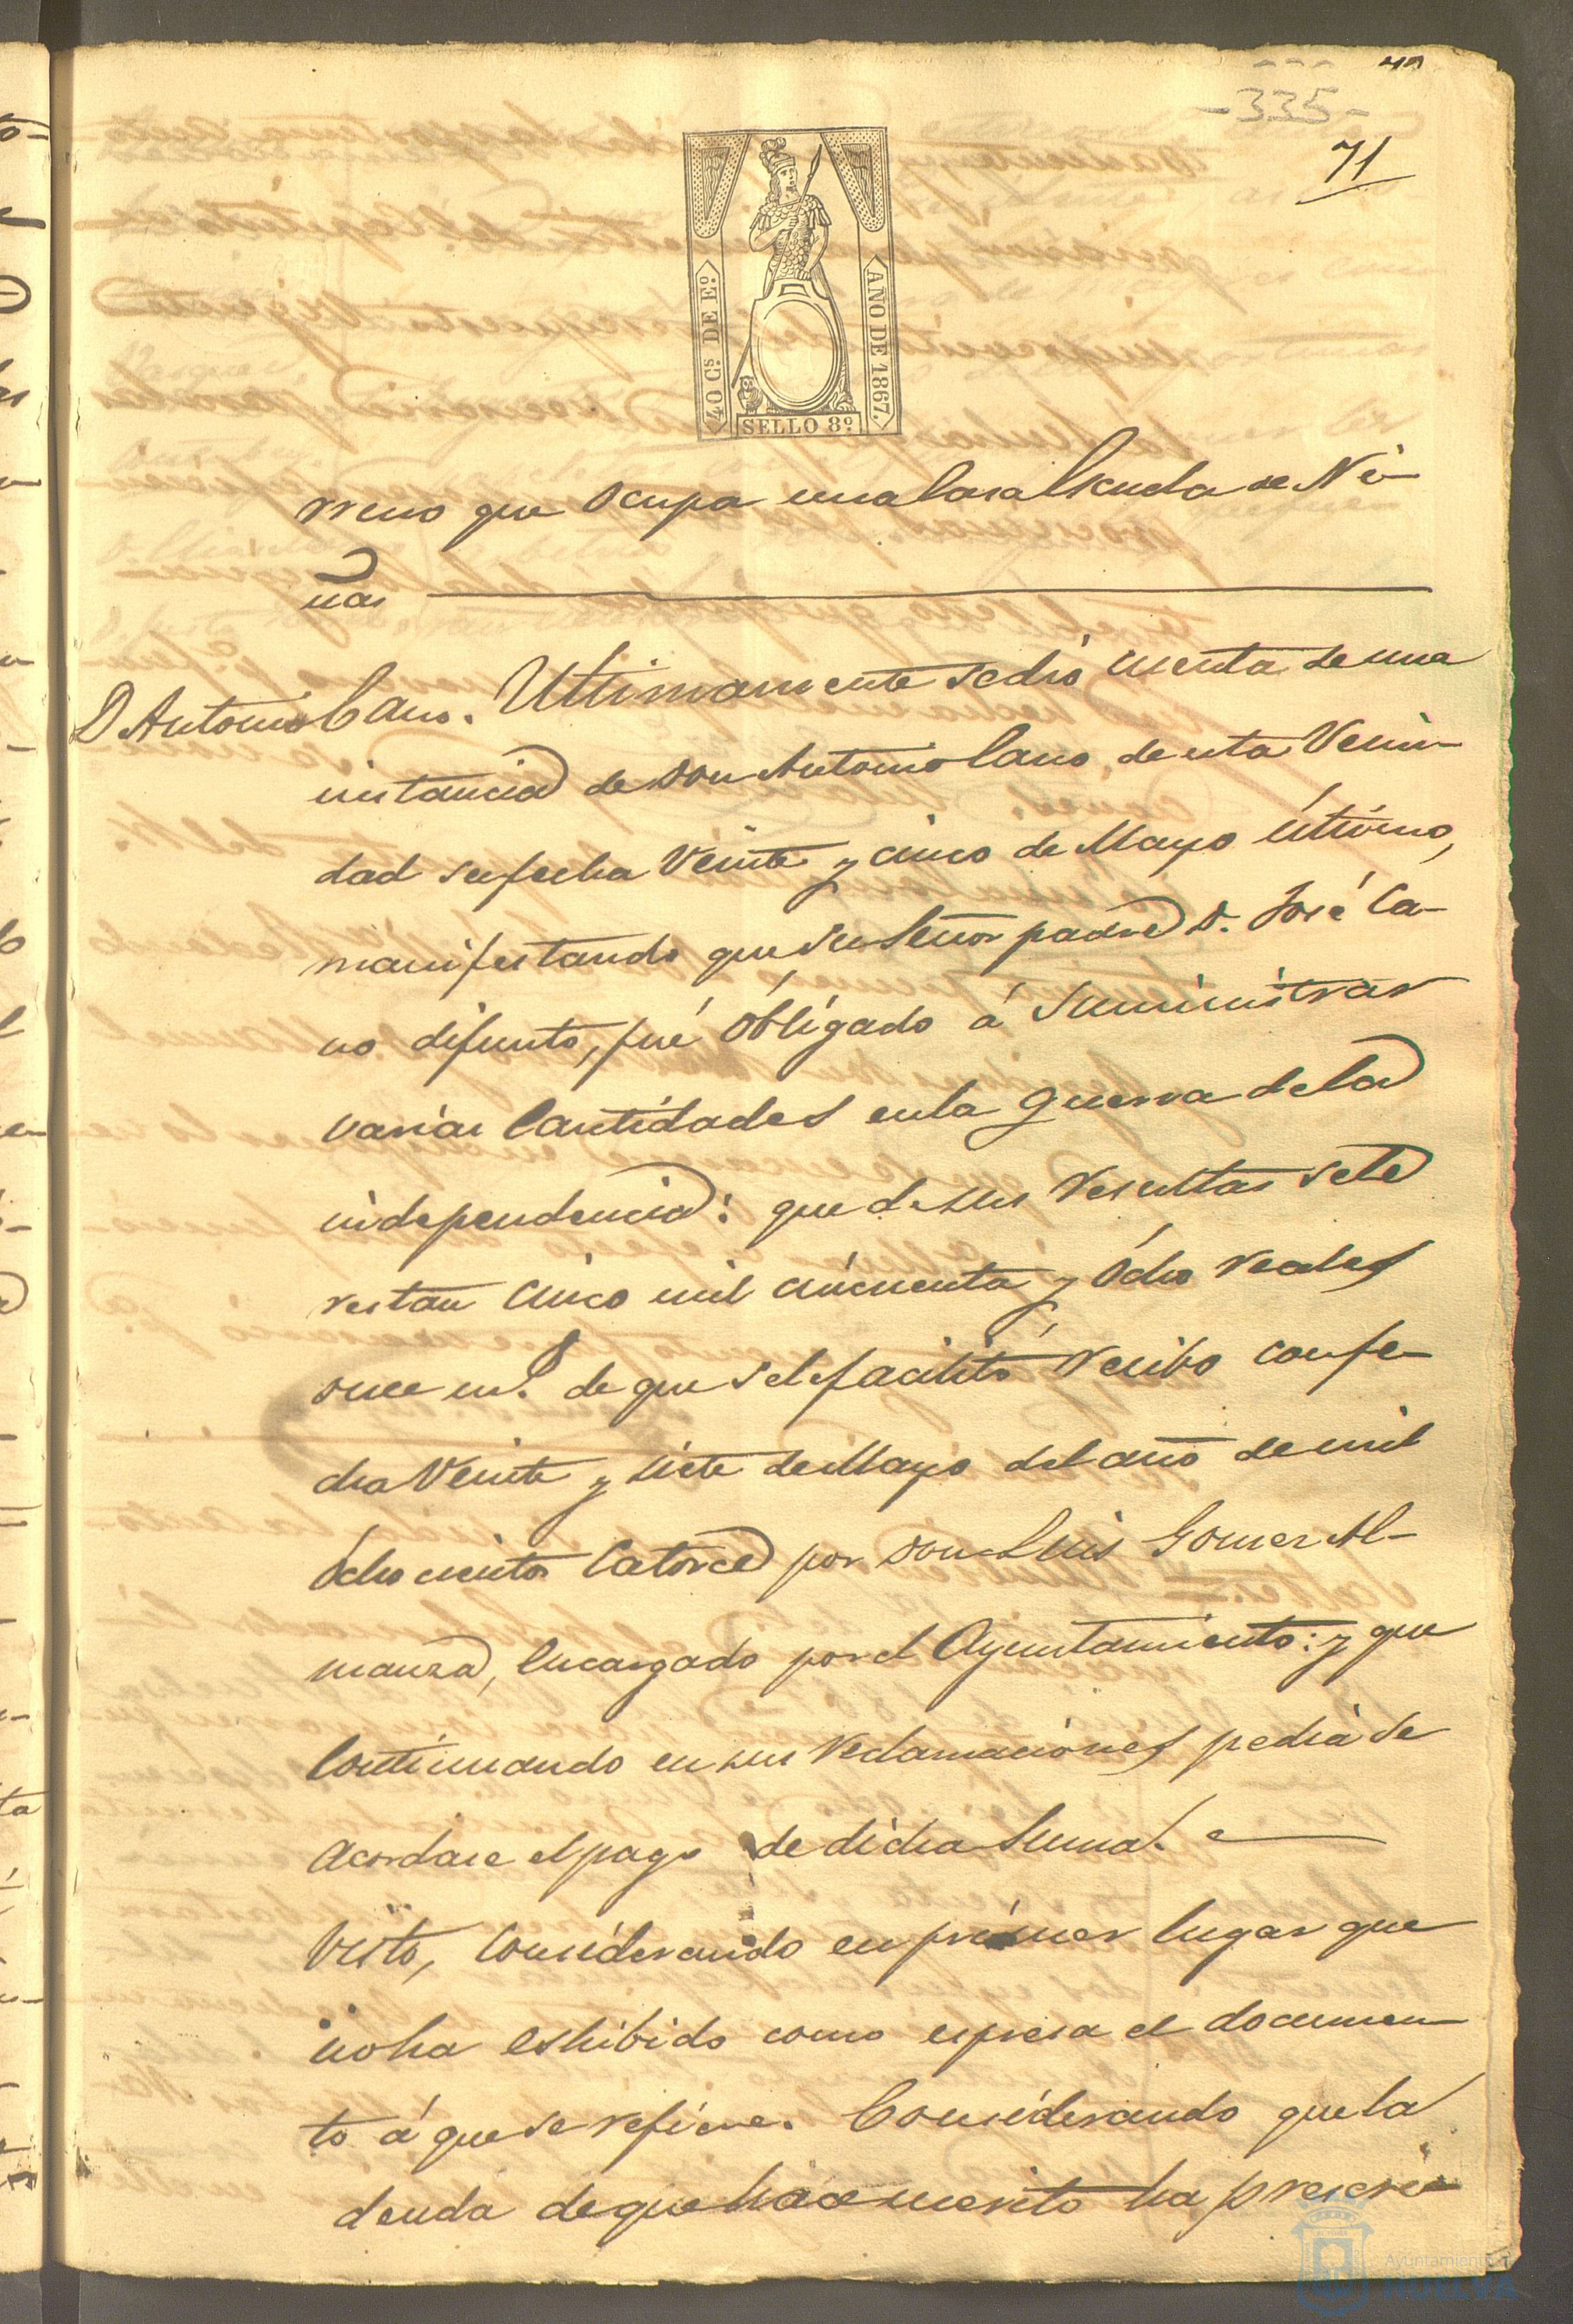 -335-
71
40 Cs. DE Eo.
AÑO DE 1867.
SELLO 8º
rreno que ocupa una Casa Escuela de Ni-
ñas
D Antonio Cano. Ultimamente se dió cuenta de una
instancia de Don Antonio Cano, de esta Vecin-
dad su fecha Veinte y cinco de Mayo último,
manifestando que su Señor padre D. José Ca-
no difunto, fué obligado á Suministrar
varias Cantidades en la guerra de la
independencia: que de sus resultas se le
restan Cinco mil cincuenta y ocho reales
once ms. de que se le facilitó recibo con fe-
cha Veinte y siete de Mayo del año de mil
ochocientos Catorce por Don Luis Gomez Al-
manza, Encargado por el Ayuntamiento: y que
Continuando en sus reclamaciones pedia se
acordase el pago de dicha Suma.
Visto, Considerando en primer lugar que
no ha eshibido como espresa el documen-
to á que se refiere. Considerando que la
deuda de que hace merito ha prescri-
Ayuntamiento
HUELVA